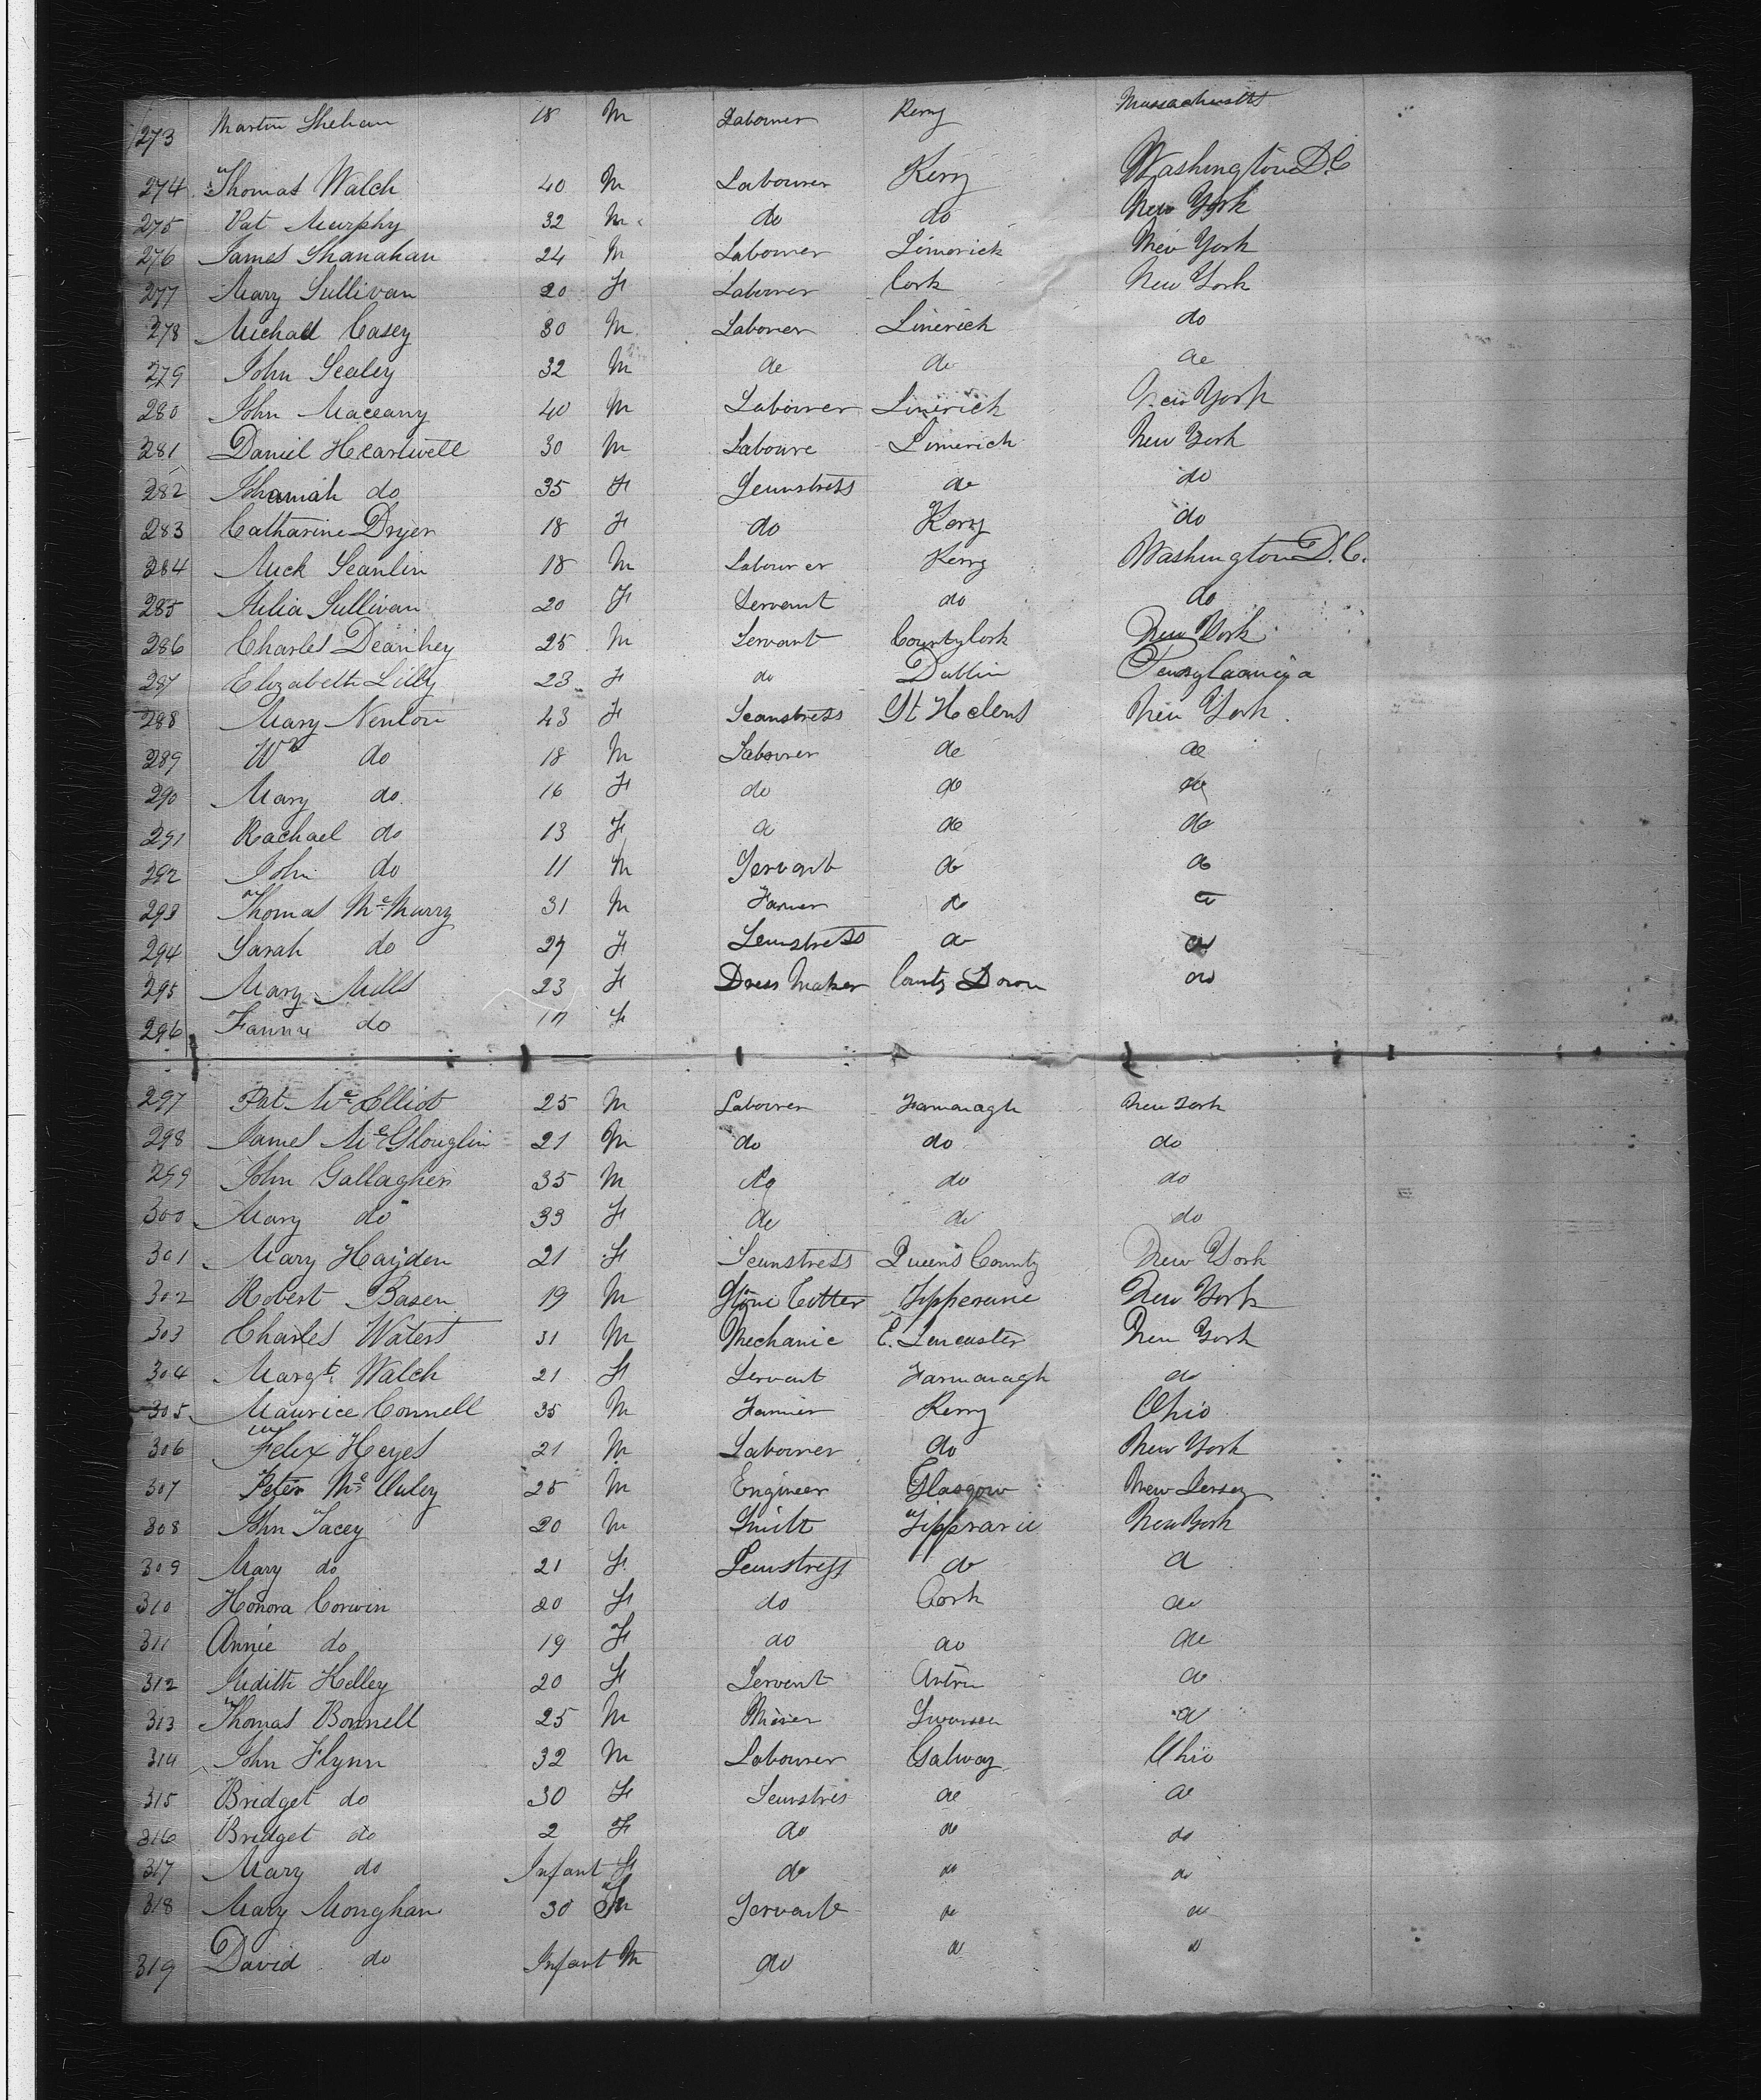 273 Martin Shehan 18 M Labourer Kerry Massachusetts
274 Thomas Walch 40 M Labourer Kerry Washington D.C
275 Pat Murphy 32 M do do New York
276 James Shanahan 24 M Labourer Limerick New York
277 Mary Sullivan 20 F Labourer Cork New York
278 Michael Casey 30 M Labourer Limerick do
279 John Sealey 32 M do do do
280 John 40 M Labourer Limerick New York
281 Daniel Heartwell 30 M Laboure Limerick New York
282 Johanah do 35 F Semstress do do
283 Catharine Dryer 18 F do Kerry do
284 Mick Scanlin 18 M Labourer Kerry Washington D.C.
285 Julia Sullivan 20 F Servant do do
286 Charles Deanhey 25 M Servant County Cork New York
287 Elizabeth Lilly 23 F do Dublin
288 Mary Newton 43 F Seamstress St Helens New York
289 Wm do 18 M Labourer do do
290 Mary do 16 F do do do
291 Rachael do 13 F do do do
292 John do 11 M Servant do do
293 Thomas McMurry 31 M Farmer do do
294 Sarah do 27 F Semstress do do
295 Mary Mills 23 F Dress Maker County Down do
296 Fannie do 17 F
297 Pat McElliot 25 M Labourer Farmanagh New York
298 James McGloughlin 21 M do do do
299 John Gallagher 35 M do do do
300 Mary do 33 F do do do
301 Mary Hayden 21 F Semstress Queens County New York
302 Robert Basen 19 M Stone Cutter Tipperarie New York
303 Charles Waters 31 M Mechanic C. Lancaster New York
304 Margt. Walch 21 F Servant Farmanagh do
305 Maurice Connell 35 M Farmer Kerry Ohio
306 Felix Heyes 21 M Labourer do New York
307 Peter McAuley 25 M Engineer Glasgow New Jersey
308 John Tacey 20 M Smith Tipperarie New York
309 Mary do 21 F Semstress do do
310 Honora Corwin 20 F do Cork do
311 Annie do 19 F do do do
312 Judith Kelley 20 F Servent Antrim do
313 Thomas Bonnell 25 M Miner Swansea do
314 John Flynn 32 M Labourer Galway Ohio
315 Bridget do 30 F Semstres do do
316 Bridget do 2 F do do do
317 Mary do Infant F do do do
318 Mary Monghan 30 F Servant do do
319 David do Infant M do do do